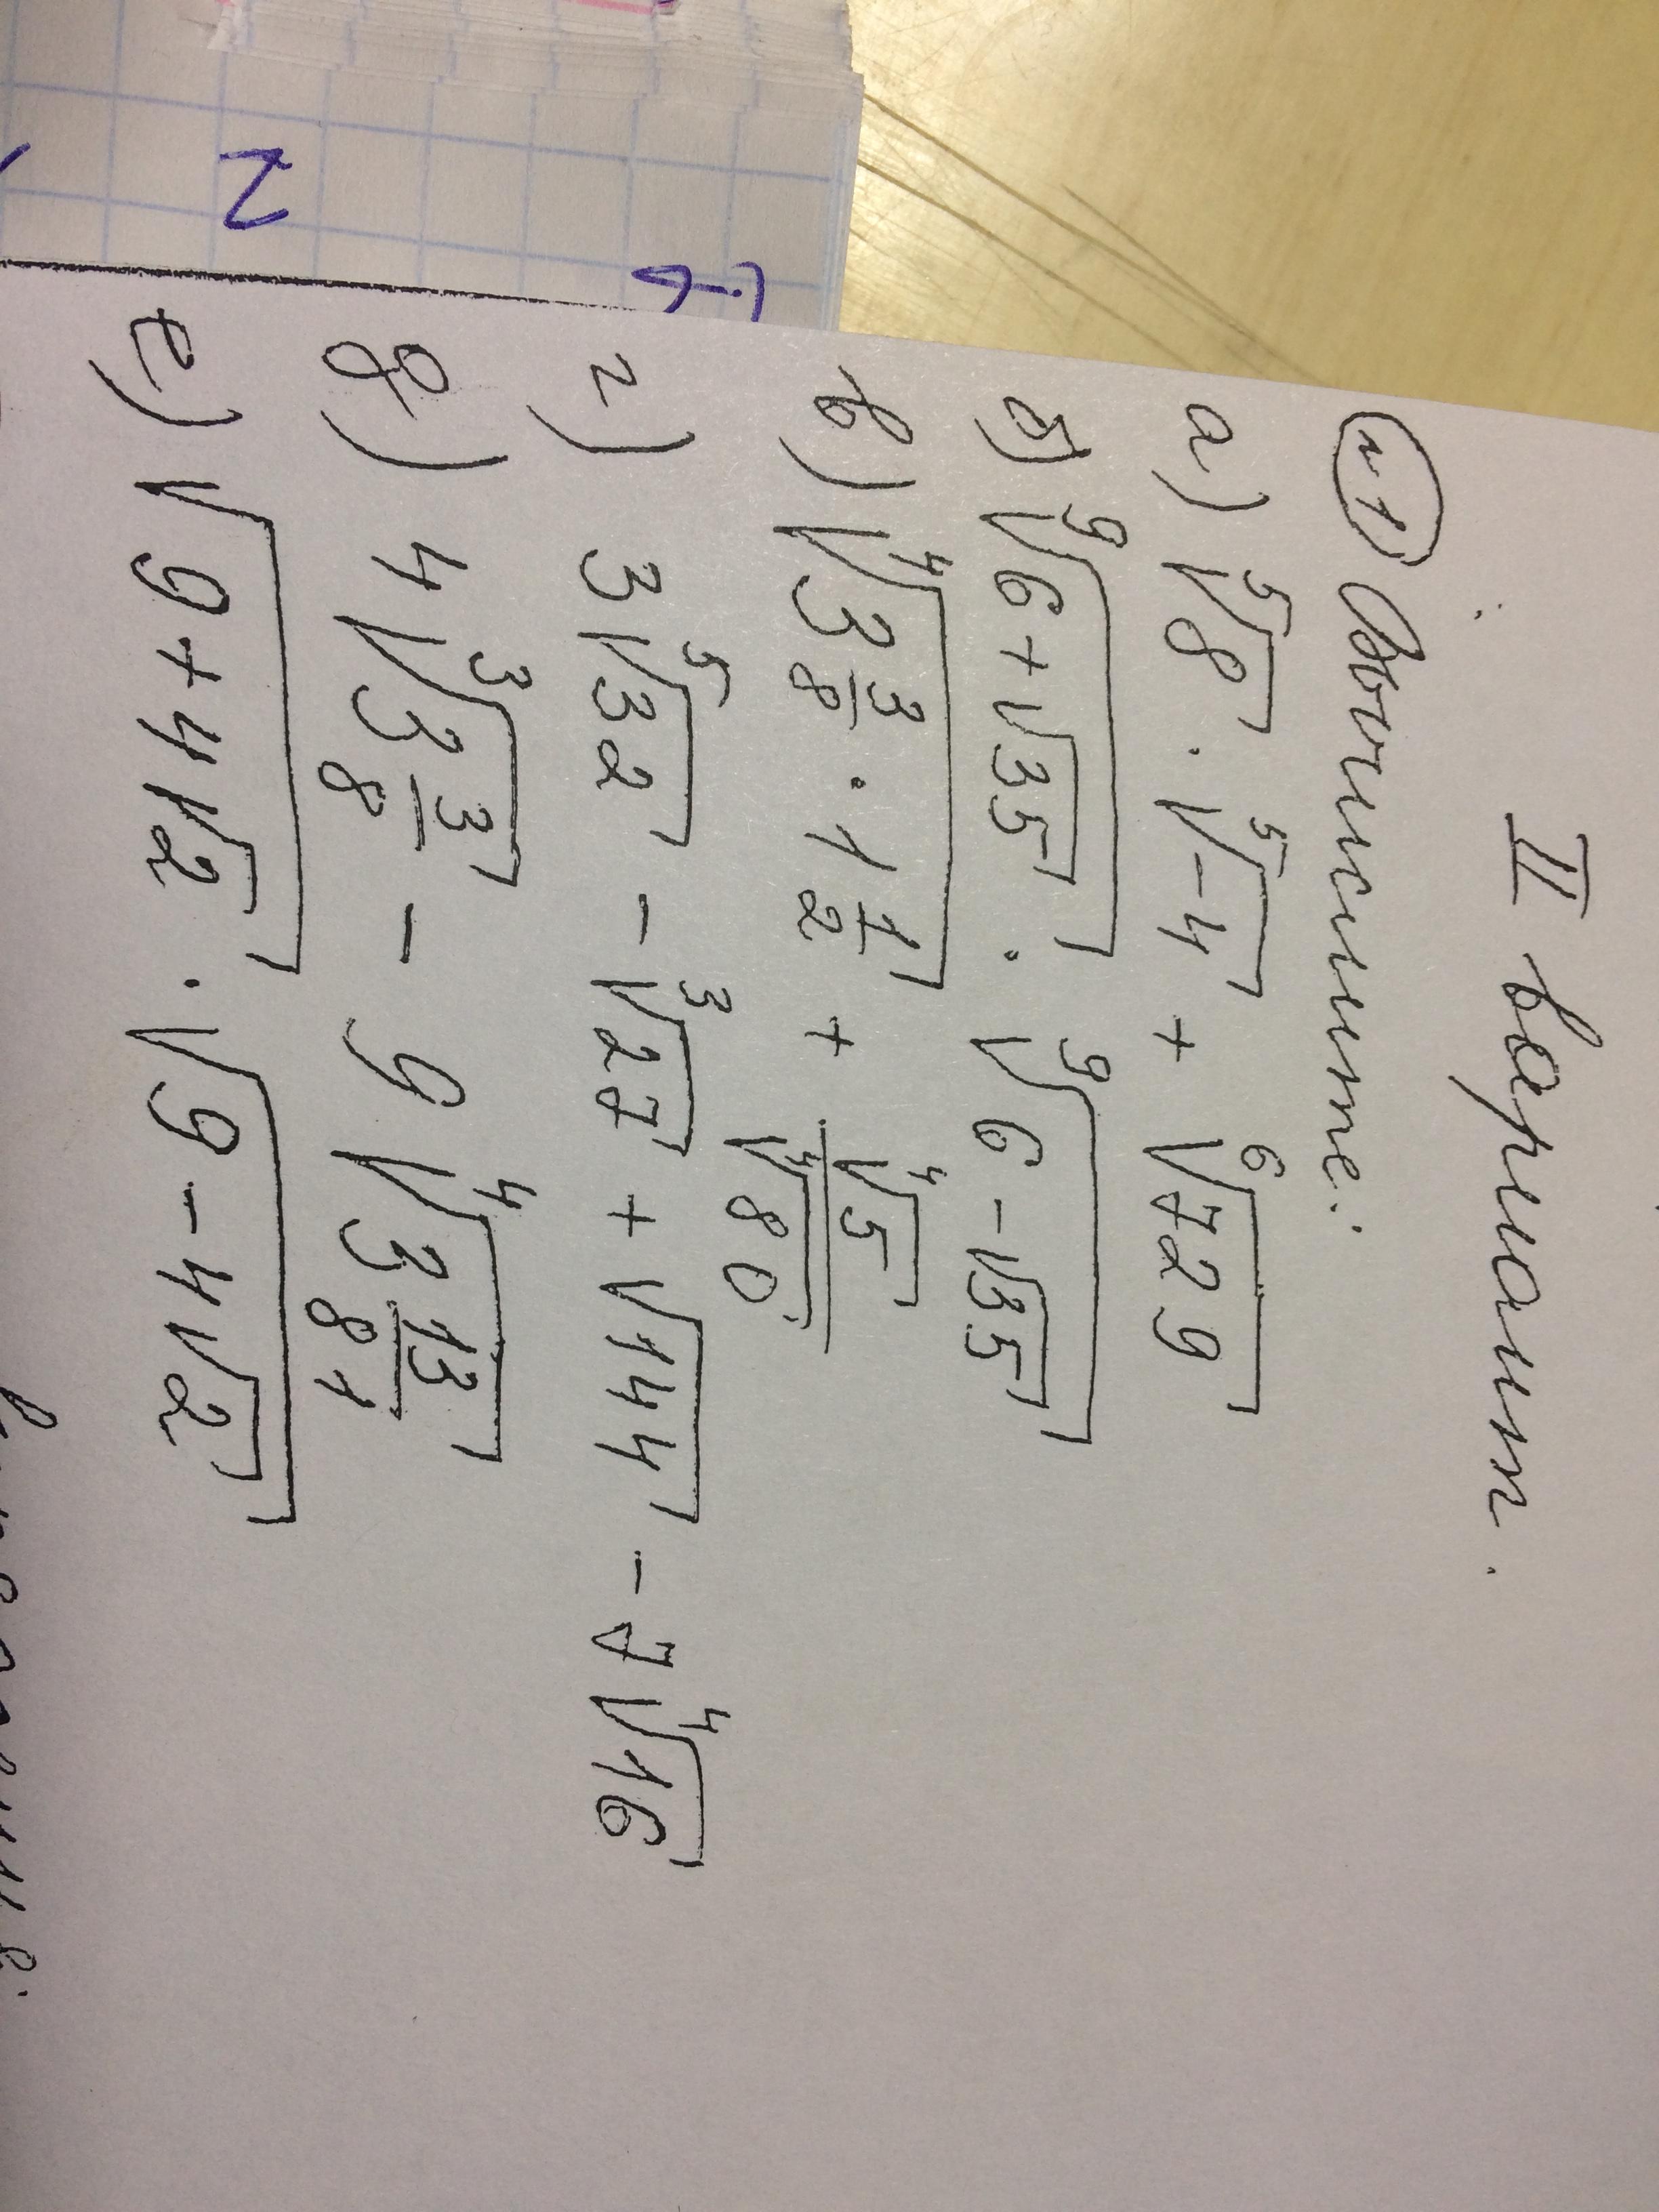 II вариант.
№1 Вычислите:
а) ⁵√8 · ⁵√-4 + ⁶√729
б) ⁹√(6+√35) · ⁹√(6-√35)
в) ⁴√(3 3/8 · 1 1/2) + ⁴√5/⁴√80
г) 3 ⁵√32 - ³√27 + √144 - 7 ⁴√16
д) 4 ³√(3 3/8) - 9 ⁴√(3 13/81)
е) √(9+4√2) · √(9-4√2)
2